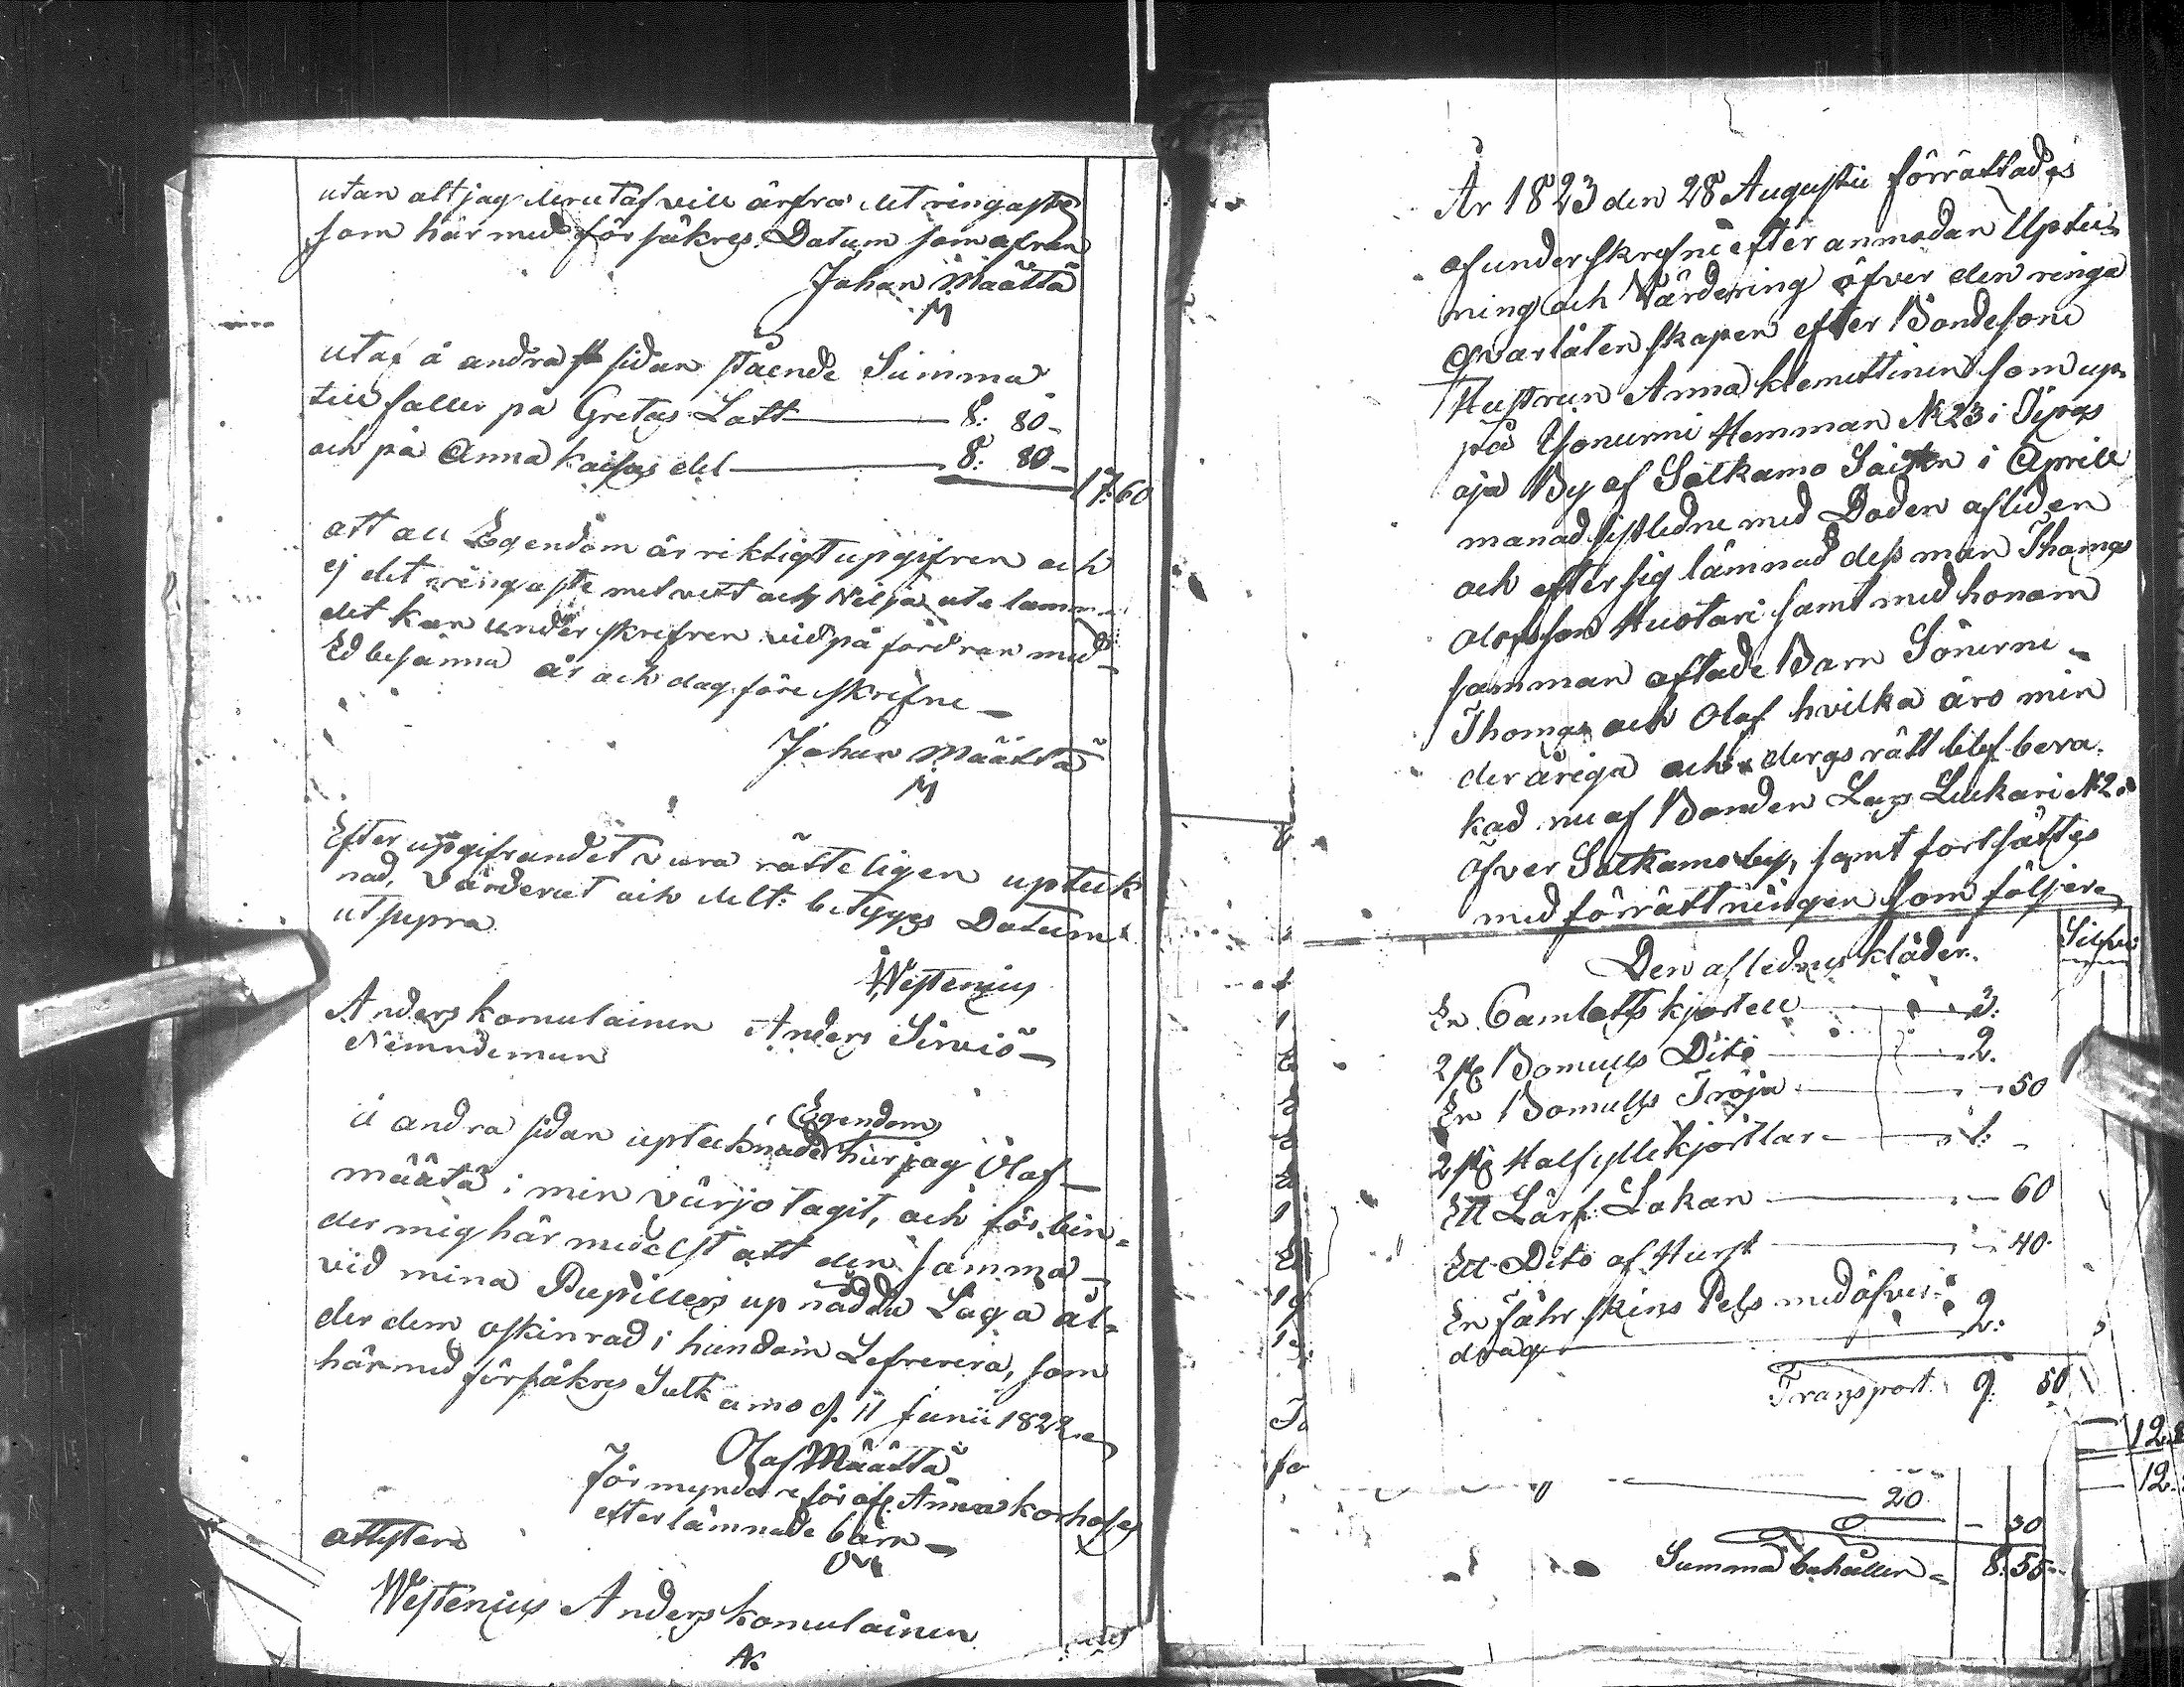 utan att jag derutaf vill ärfra det ringaste
som här med försäkres. Datum som ofvan
Johan Määttä
utaf å andra sidan stående Summa
till faller på Gretas Lott — 8: 80 –
och på Anna Kaisas del — 8: 80 –
17: 60
att all Egendom är riktigt upgifven och
ej det ringaste med vett och vilja utelämn
det kan underskrefven vid på fördran med
Ed besanna år och dag före skrefne –
Johan Määttä
Efter upgifvandet vara rätteligen uptek
nad, värderat och delt: betyges Datum
ut supra
Westenius
Anders Komulainen Anders Sirviö –
Nämndeman
Egendom
Å andra sidan uptecknade har jag Olaf –
Määttä i min värjo tagit, och förbin=
der mig här medelst att den samma –
vid mina Pupillers upnådda Laga ål=
der dem oskinrad i handom Lefverera, som
härmed försäkres Sotkamo d. 11 Junii 1822
Olaf Määttä
Förmyndare för afl. Anna Korhoses
efterlämnade barn –
attestera
Westenius Anders Komulainen
År 1823 den 28 Augustii förrättades
af underskrefne efter anmodan Uptek
ning och Värdering öfver den ringa
Qvarlåtenskapen efter Bondesone
Hustrun Anna Klemettinen som up
på Honurni Hemman No 23 i Tipas
oja By af Sotkamo Socken i Aprill
manad sistledne med Döden afleden
och efter sig lämnad dess man Thomas
Olofsson Huotari samt med honom
samman aflade Barn Sönerne –
Thomas och Olaf hvilka äro min
deråriga och deras rätt blef beva
kad nu af Bonden Lars Luukari No 2
öfver Sotkamo by, samt fortsättes
med förrättningen som följer
Silfver
Den aflednes kläder.
En Camlotts kjortell — 3:
2 st Bomulls Dito — 2.
En Bomulls Tröja — 50
2 st Halfylle kjortlar — 1: –
Ett Lärf: Lakan — 60
Ett Dito af Hurst — 40
En Fåhr skins Pels med öfver:
drag — 2:
Transport 9: 50
12
12.
20
– 30
Summa behållen = 8: 55